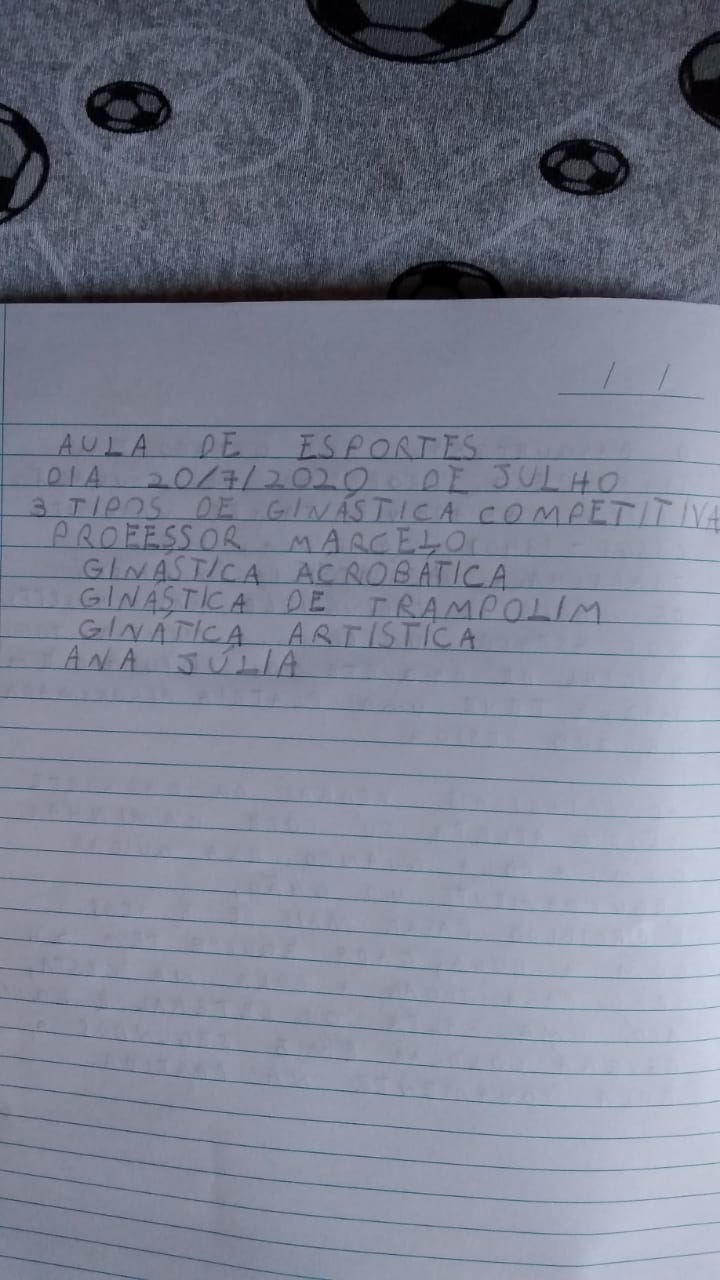 / /
AULA DE ESPORTES
DIA 20/7/2020 DE JULHO
3 TIPOS DE GINÁSTICA COMPETITIVA
PROFESSOR MARCELO
GINÁSTICA ACROBÁTICA
GINÁSTICA DE TRAMPOLIM
GINÁTICA ARTISTICA
ANA JÚLIA